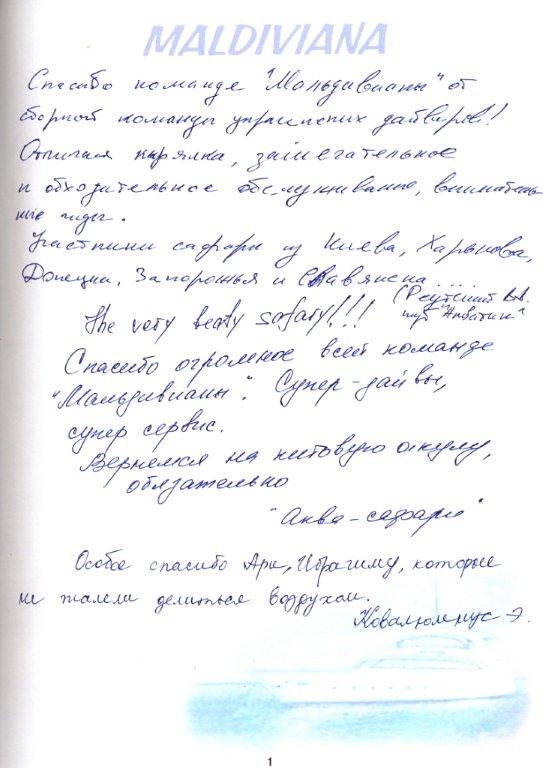 MALDIVIANA
Спасибо команде "Мальдивианы" от
сборной команды украинских дайверов!
Отличная нырялка, замечательное
и обходительное обслуживание, вниматель-
ные гиды.
Участники сафари из Киева, Харькова,
Донецка, Запорожья и Славянска....
(Реутский В.В.
The very beaty safary!!!
Спасибо огромное всей команде
"Мальдивианы". Супер-дайвы,
супер сервис.
Вернемся на китовую акулу,
обязательно
"Аква-сафари"
Особое спасибо Ари, Ибрагиму, которые
не жалели делиться воздухом.
Э.
1